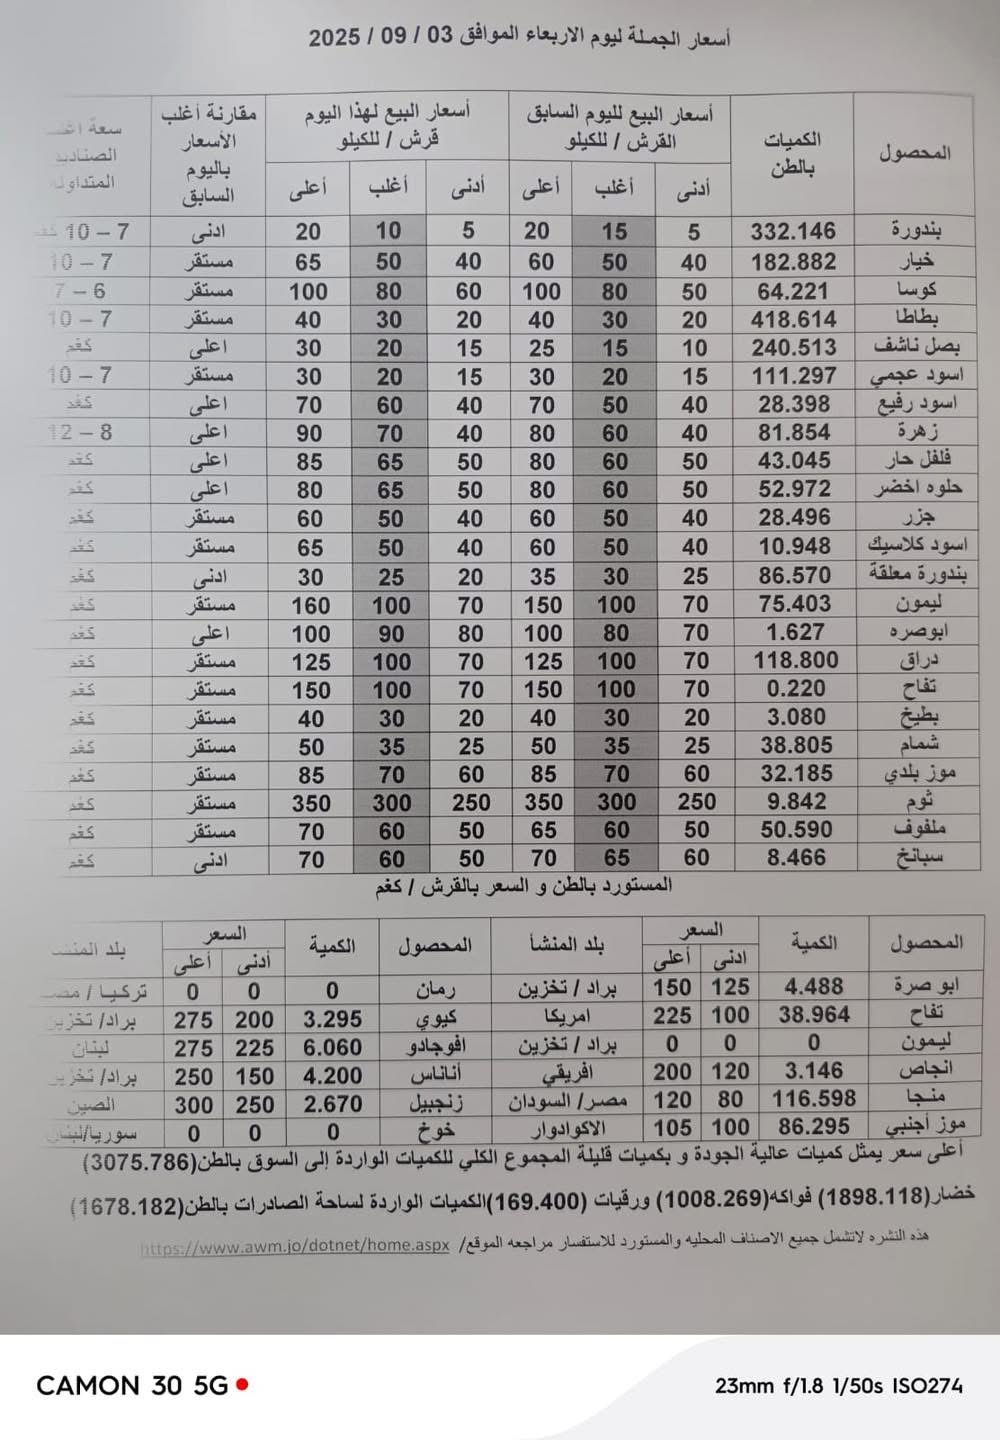 أسعار الجملة ليوم الاربعاء الموافق 03 / 09 / 2025
المحصول الكميات بالطن أسعار البيع لليوم السابق القرش / للكيلو أسعار البيع لهذا اليوم قرش / للكيلو مقارنة أغلب الأسعار باليوم السابق سعة الصناديق المتداولة
أدنى أغلب أعلى أدنى أغلب أعلى
بندورة 332.146 5 15 20 5 10 20 ادنى 7 – 10 كغم
خيار 182.882 40 50 60 40 50 65 مستقر 7 – 10
كوسا 64.221 50 80 100 60 80 100 مستقر 6 – 7
بطاطا 418.614 20 30 40 20 30 40 مستقر 7 – 10
بصل ناشف 240.513 10 15 25 15 20 30 اعلى كغم
اسود عجمي 111.297 15 20 30 15 20 30 مستقر 7 – 10
اسود رفيع 28.398 40 50 70 40 60 70 اعلى كغم
زهرة 81.854 40 60 80 40 70 90 اعلى 8 – 12
فلفل حار 43.045 50 60 80 50 65 85 اعلى كغم
حلوه اخضر 52.972 50 60 80 50 65 80 اعلى كغم
جزر 28.496 40 50 60 40 50 60 مستقر كغم
اسود كلاسيك 10.948 40 50 60 40 50 65 مستقر كغم
بندورة معلقة 86.570 25 30 35 20 25 30 ادنى كغم
ليمون 75.403 70 100 150 70 100 160 مستقر كغم
ابوصره 1.627 70 80 100 80 90 100 اعلى كغم
دراق 118.800 70 100 125 70 100 125 مستقر كغم
تفاح 0.220 70 100 150 70 100 150 مستقر كغم
بطيخ 3.080 20 30 40 20 30 40 مستقر كغم
شمام 38.805 25 35 50 25 35 50 مستقر كغم
موز بلدي 32.185 60 70 85 60 70 85 مستقر كغم
ثوم 9.842 250 300 350 250 300 350 مستقر كغم
ملفوف 50.590 50 60 65 50 60 70 مستقر كغم
سبانخ 8.466 60 65 70 50 60 70 ادنى كغم
المستورد بالطن و السعر بالقرش / كغم
المحصول الكمية السعر بلد المنشأ المحصول الكمية السعر بلد
ادنى أعلى أدنى أعلى
ابو صرة 4.488 125 150 براد / تخزين رمان 0 0 0 تركيا /
تفاح 38.964 100 225 امريكا كيوي 3.295 200 275 براد/ تخزين
ليمون 0 0 0 براد / تخزين افوجادو 6.060 225 275 لبنان
انجاص 3.146 120 200 افريقي أناناس 4.200 150 250 براد/ تخزين
منجا 116.598 80 120 مصر/ السودان زنجبيل 2.670 250 300 الصين
موز أجنبي 86.295 100 105 الاكوادوار خوخ 0 0 0 سوريا/لبنان
أعلى سعر يمثل كميات عالية الجودة و بكميات قليلة المجموع الكلي للكميات الواردة إلى السوق بالطن(3075.786)
خضار(1898.118) فواكه(1008.269) ورقيات (169.400)الكميات الواردة لساحة الصادرات بالطن(1678.182)
هذه النشره لاتشمل جميع الاصناف المحليه والمستورد للاستفسار مراجعه الموقع/ https://www.awm.jo/dotnet/home.aspx
CAMON 30 5G 23mm f/1.8 1/50s ISO274